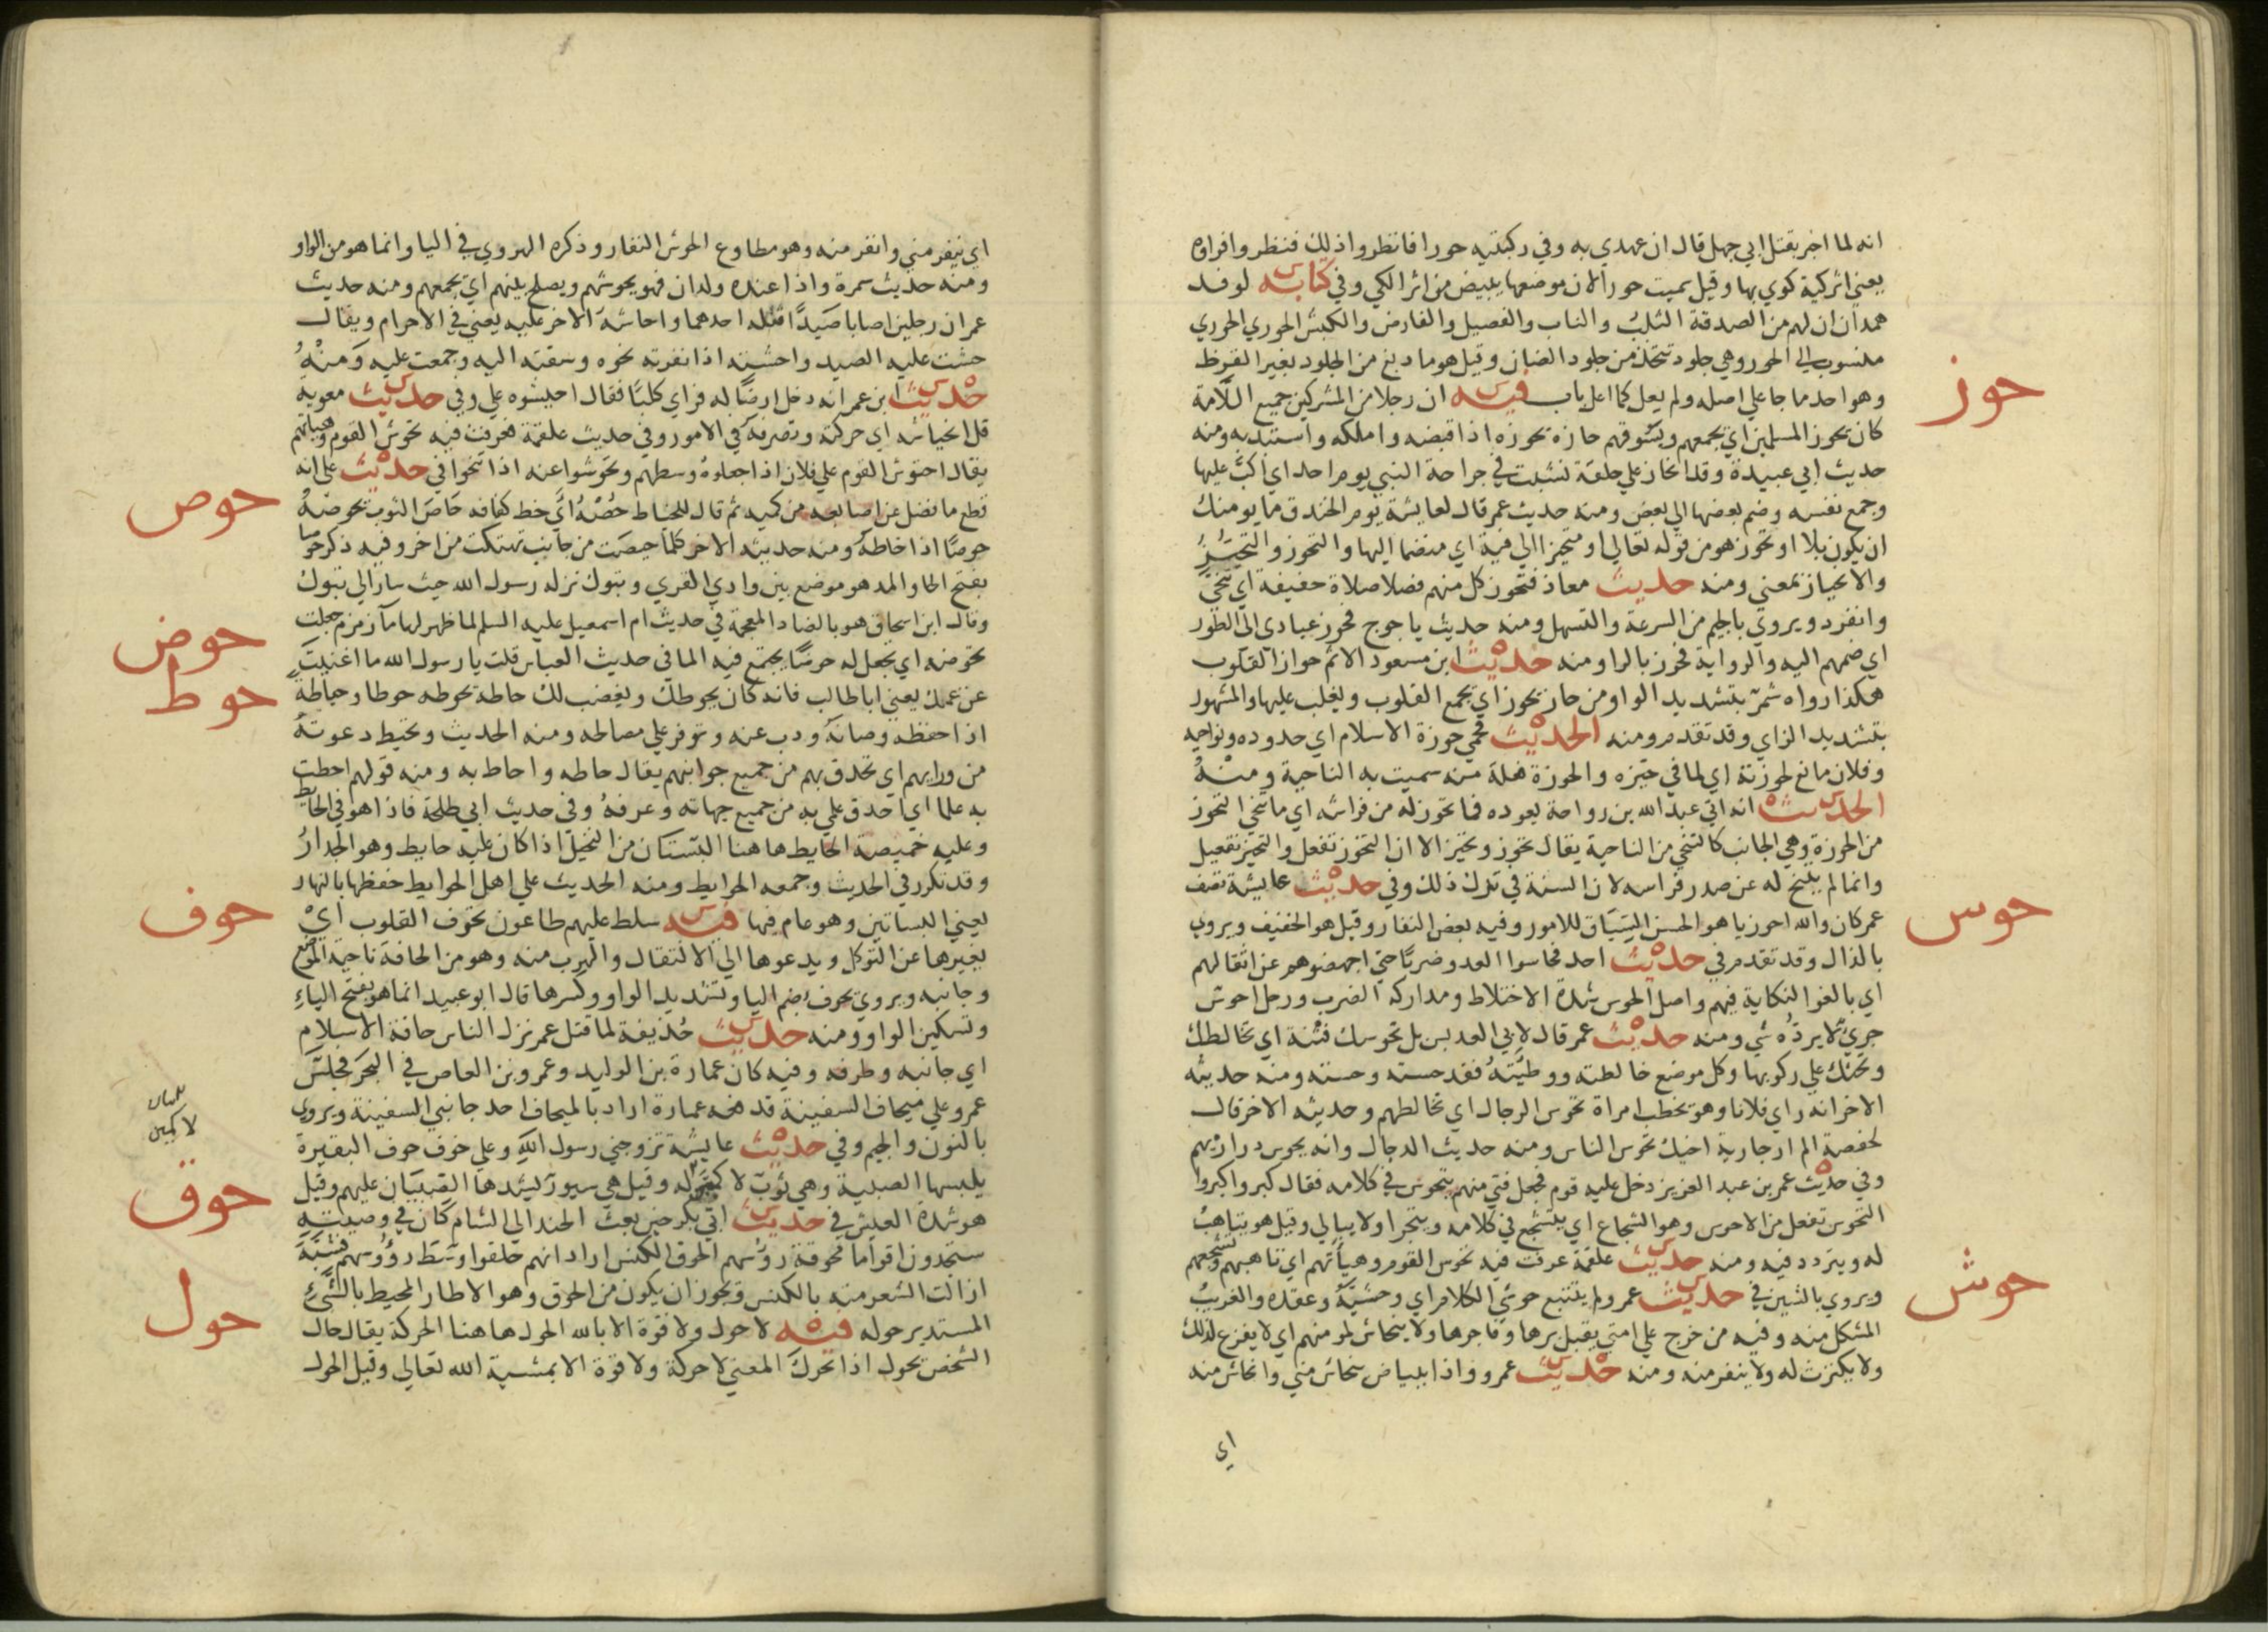 انه لما اخبر بقتل ابي جهل قال ان عهدي به وفي ركبتيه حورا فانظروا ذلك فنظروا فراوه
يعني اثر كية كوي بها وقيل سميت حورا لان موضعها يبيض من اثر الكي وفي كتابه لوفد
همدان ان لهم من الصدقة الثلب والناب والفصيل والفارض والكبش الحوري الحوري
منسوب الي الحور وهي جلود تتخذ من جلود الضان وقيل هو ما دبغ من الجلود بغير القرظ
وهو احد ما جا علي اصله ولم يعل كما اعل باب فيه ان رجلا من المشركين جميع اللأمة
حوز
كان يحوز المسلمين اي يجمعهم ويسوقهم حازه يحوزه اذا قبضه واملكه واستبد به ومنه
حديث ابي عبيدة وقد انحاز علي حلقة نشبت في جراحة النبي يوم احد اي اكب عليها
وجمع نفسه وضم بعضها الي بعض ومنه حديث عمر قال لعايشة يوم الخندق ما يومنك
ان يكون بلا او تحوز هو من قوله تعالي او متحيزا الي فية اي منضما اليها والتحوز والتحيز
والانحياز بمعني ومنه حديث معاذ فتحوز كل منهم فصلا صلاة خفيفة اي تنحي
وانفرد ويروي بالجيم من السرعة والتسهل ومنه حديث ياجوج فحوز عبادي الي الطور
اي ضمهم اليه والرواية فحرز بالرا ومنه حديث ابن مسعود الاثم حواز القلوب
هكذا رواه شمر بتشديد الواو من حاز يحوز اي يجمع القلوب ويغلب عليها والمشهور
بتشديد الزاي وقد تقدم ومنه الحديث فحمي حوزة الاسلام اي حدوده ونواحيه
وفلان مانع لحوزته اي لما في حيزه والحوزة فعلة منه سميت به الناحية ومنه
الحديث انه اتي عبد الله بن رواحة يعوده فما تحوز له من فراشه اي ما تنحي التحوز
من الحوزة وهي الجانب كالتنحي من الناحية يقال تحوز وتحيز الا ان التحوز تفعل والتحيز تفعيل
وانما لم يتنح له عن صدر فراشه لان السنة في ترك ذلك وفي حديث عايشة تصف
عمر كان والله احوزيا هو الحسن السياق للامور وفيه بعض النفار وقيل هو الخفيف ويروي
حوس
بالذال وقد تقدم في حديث احد فحاسوا العدو ضربا حتي اجهضوهم عن اثقالهم
اي بالغوا النكاية فيهم واصل الحوس شدة الاختلاط ومداركة الضرب ورجل احوس
جري لا يرده شي ومنه حديث عمر قال لابي العدبس بل تحوسك فتنة اي تخالطك
وتحثك علي ركوبها وكل موضع خالطته ووطيته فقد حسته وحسته ومنه حديثه
الاخر انه راي فلانا وهو يخطب امراة تحوس الرجال اي تخالطهم وحديثه الاخر قال
لحفصة الم ار جارية اخيك تحوس الناس ومنه حديث الدجال وانه يحوس دراريهم
وفي حديث عمر بن عبد العزيز دخل عليه قوم فجعل فتي منهم يتحوس في كلامه فقال كبروا كبروا
التحوس تفعل من الاحوس وهو الشجاع اي يتشجع في كلامه ويتجرا ولا يبالي وقيل هو يتاهب
له ويتردد فيه ومنه حديث علقمة عرفت فيه تحوس القوم وهياتهم اي تاهبهم وتشجعهم
ويروي بالشين في حديث عمر ولم يتتبع حوشي الكلام اي وحشية وعقده والغريب
حوش
المشكل منه وفيه من خرج علي امتي يقبل برها وفاجرها ولا ينحاش لمومنهم اي لا يفزع لذلك
ولا يكترث له ولا ينفر منه ومنه حديث عمرو واذا ببياض ينحاش مني وانحاش منه
اي
اي ينفر مني وانفر منه وهو مطاوع الحوش النفار وذكره الهروي في اليا وانما هو من الواو
ومنه حديث سمرة واذا عنده ولدان فهو يحوشهم ويصلح بينهم اي يجمعهم ومنه حديث
عمر ان رجلين اصابا صيدا قتله احدهما واحاشه الاخر عليه يعني في الاحرام ويقال
حشت عليه الصيد واحشته اذا نفرته نحوه وسقته اليه وجمعت عليه ومنه
حديث ابن عمر انه دخل ارضا له فراي كلبا فقال احيشوه علي وفي حديث معوية
قل انحياشه اي حركته وتصرفه في الامور وفي حديث علقمة فعرفت فيه تحوش القوم وهياتهم
يقال احتوش القوم علي فلان اذا جعلوه وسطهم وتحوشوا عنه اذا تنحوا في حديث علي انه
حوص
قطع ما فضل عن اصابعه من كميه ثم قال للخياط حصه اي خط كفافه حاص الثوب يحوصه
حوصا اذا خاطه ومنه حديثه الاخر كلما حيصت من جانب تهتكت من اخر وفيه ذكر حوصا
بفتح الحا والمد هو موضع بين وادي القري وتبوك نزله رسول الله حيث سار الي تبوك
وقال ابن اسحاق هو بالضاد المعجمة في حديث ام اسمعيل عليه السلم لما ظهر لها ما زمزم جعلت
حوض
تحوضه اي يجعل له حوضا يجتمع فيه الما في حديث العباس قلت يا رسول الله ما اغنيت
حوط
عن عمك يعني ابا طالب فانه كان يحوطك ويغضب لك حاطه يحوطه حوطا وحياطة
اذا حفظه وصانه ودب عنه وتوفر علي مصالحه ومنه الحديث وتحيط دعوته
من ورايهم اي تحدق بهم من جميع جوانبهم يقال حاطه واحاط به ومنه قولهم احطت
به علما اي احدق علمي به من جميع جهاته وعرفه وفي حديث ابي طلحة فاذا هو في الحايط
وعليه خميصة الحايط هاهنا البستان من النخيل اذا كان عليه حايط وهو الجدار
وقد تكرر في الحديث وجمعه الحوايط ومنه الحديث علي اهل الحوايط حفظها بالنهار
يعني البساتين وهو عام فيها فيه سلط عليهم طاعون تحوف القلوب اي
حوف
يغيرها عن التوكل ويدعوها الي الانتقال والهرب منه وهو من الحافة ناحية الموضع
وجانبه ويروي يحوف بضم اليا وتشديد الواو وكسرها قال ابو عبيد انما هو بفتح الياء
وتسكين الواو ومنه حديث حذيفة لما قتل عمر نزل الناس حافة الاسلام
اي جانبه وطرفه وفيه كان عمارة بن الوليد وعمرو بن العاص في البحر فجلس
عمرو علي ميحاف السفينة فدفعه عمارة اراد بالميحاف احد جانبي السفينة ويروي
بالنون والجيم وفي حديث عايشة تزوجني رسول الله وعلي حوف حوف البقيرة
يلبسها الصبية وهي ثوب لا كمين له وقيل هي سيور يشدها الصبيان عليهم وقيل
لا كمين
هو شدة العيش في حديث ابي بكر حين بعث الجند الي الشام كان في وصيته
حوق
ستجدون اقواما محوقة روسهم الحوق الكنس اراد انهم حلقوا وسط رؤوسهم فشبه
ازالة الشعر منه بالكنس ويجوز ان يكون من الحوق وهو الاطار المحيط بالشيء
المستدير حوله فيه لا حول ولا قوة الا بالله الحول هاهنا الحركة يقال حال
حول
الشخص يحول اذا تحرك المعني لا حركة ولا قوة الا بمشية الله تعالي وقيل الحول